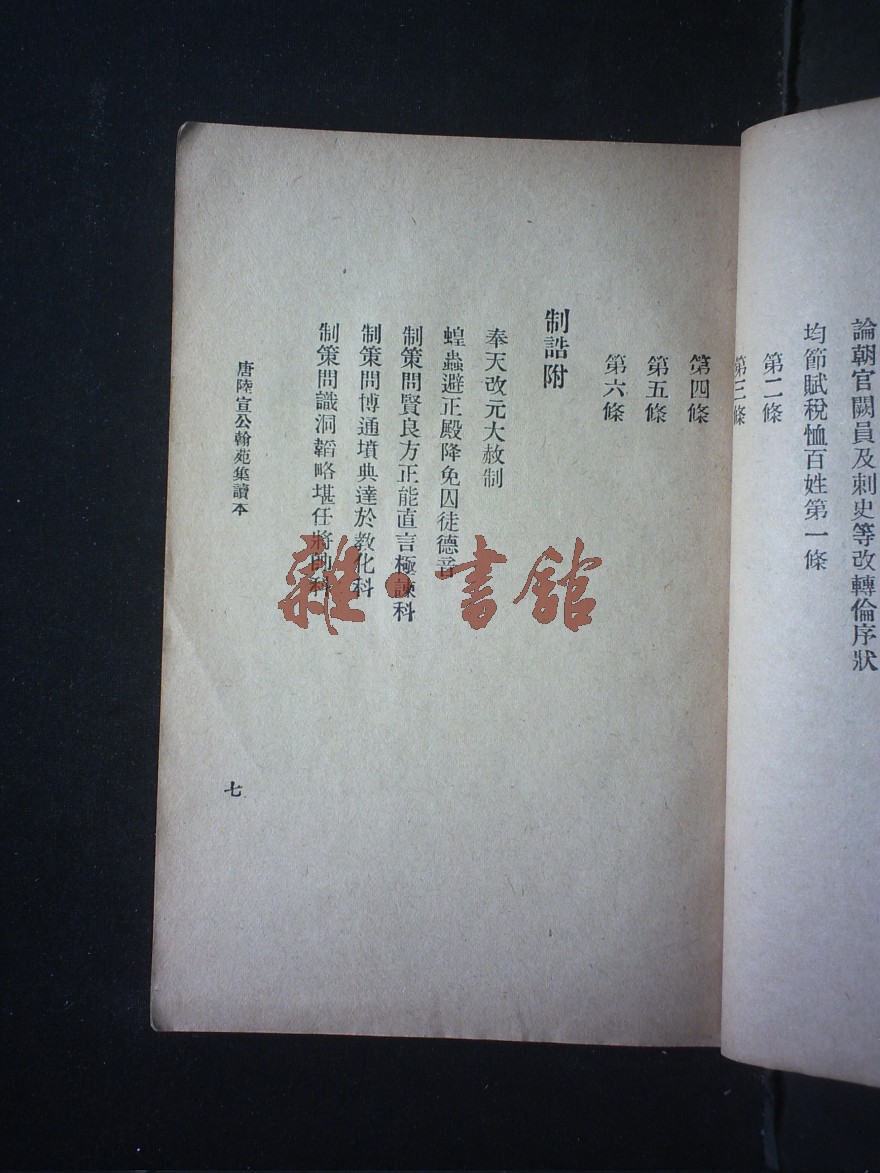 論朝官闕員及刺史等改轉倫序狀
均節賦稅恤百姓第一條
第二條
第三條
第四條
第五條
第六條
制誥附
奉天改元大赦制
蝗蟲避正殿降免囚徒德音
制策問賢良方正能直言極諫科
制策問博通墳典達於教化科
制策問識洞韜略堪任將帥科
唐陸宣公翰苑集讀本
七
雜·書館